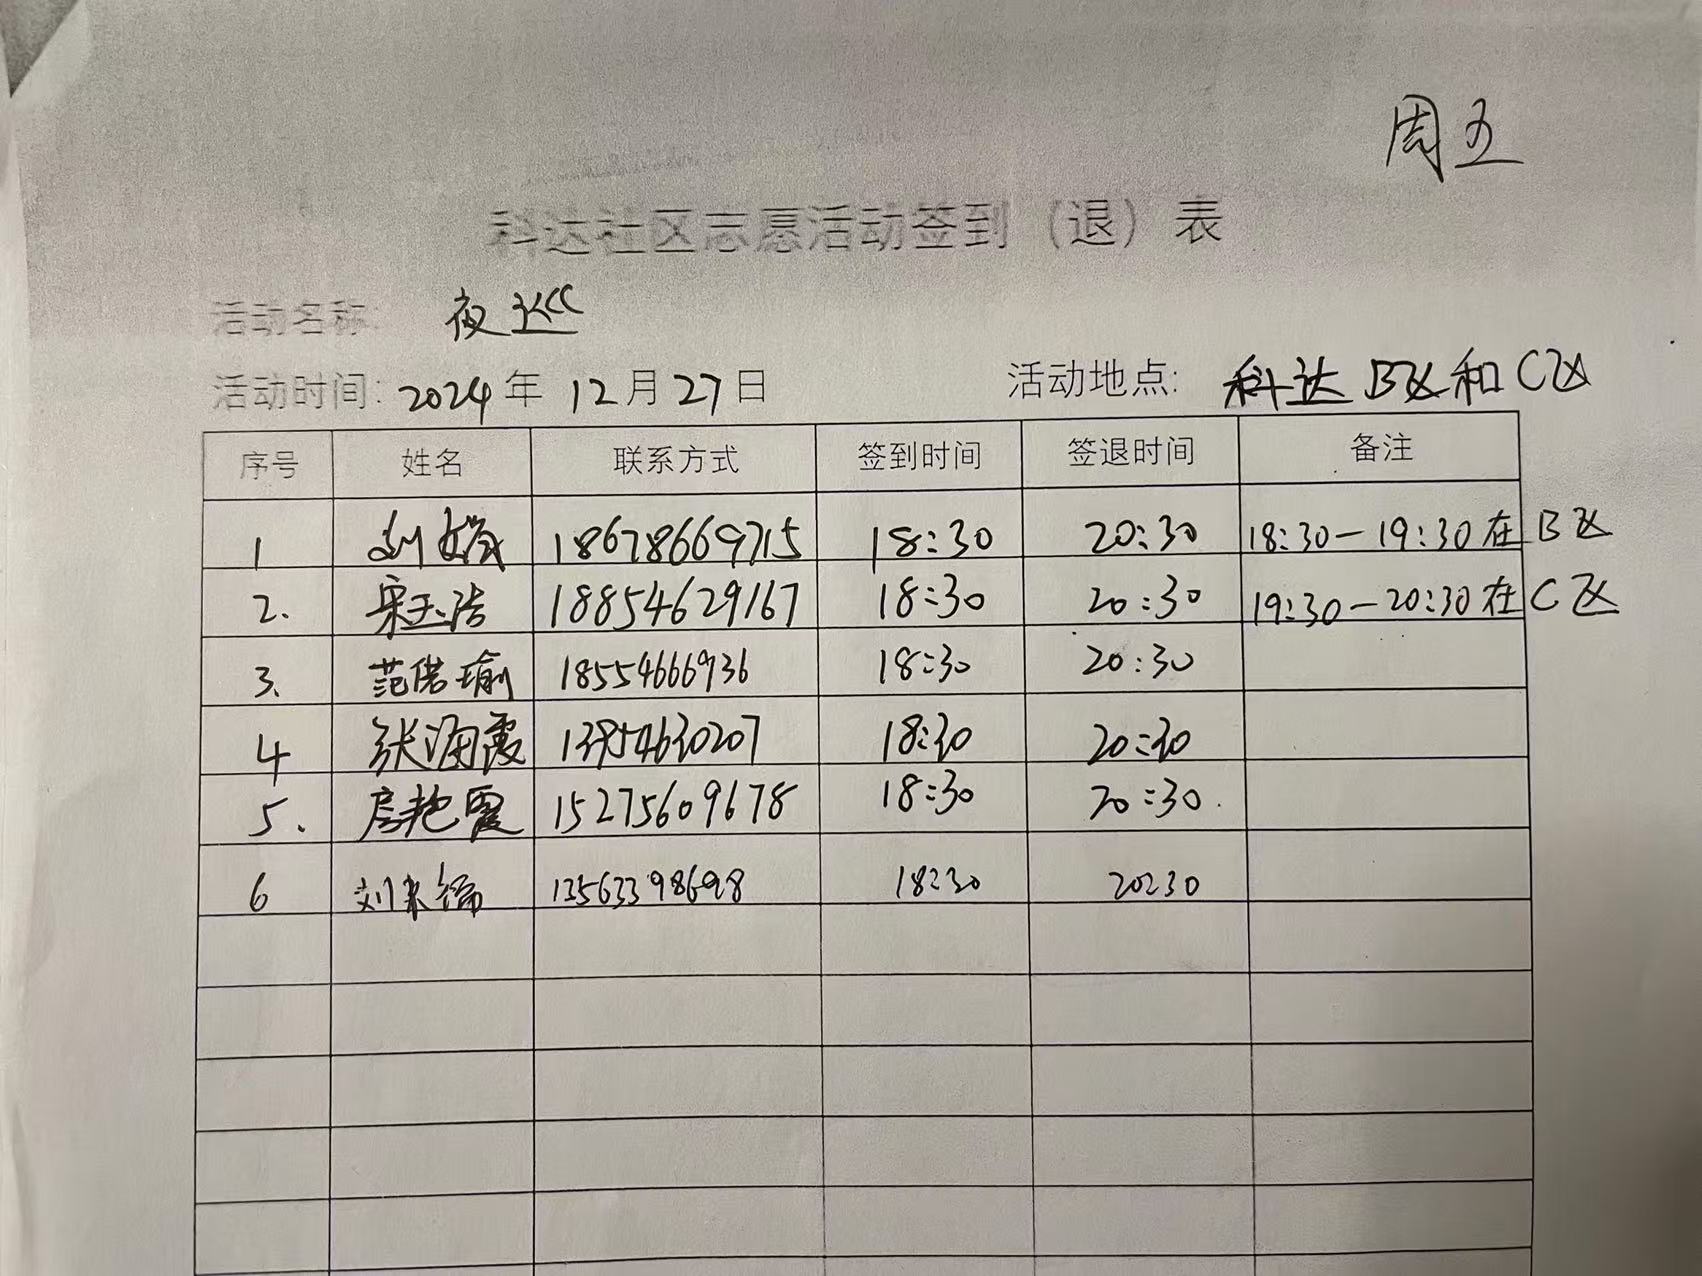 周五
科达社区志愿活动签到（退）表
活动名称: 夜巡
活动时间: 2024年 12月27日 活动地点: 科达B区和C区
序号 姓名 联系方式 签到时间 签退时间 备注
1 刘 18678669715 18:30 20:30 18:30-19:30在B区
2. 宋玉浩 18854629167 18:30 20:30 19:30-20:30在C区
3. 范偌瑜 18554666936 18:30 20:30
4 张海霞 13954630207 18:30 20:30
5. 房艳霞 15275609678 18:30 20:30.
6 刘 13563398698 18:30 20:30